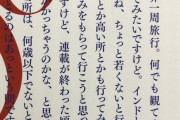 一周旅行。何でも観て
てみたいですけど。インド
ね、ちょっと若くないと行
とか高い所とかも行って
みをもらって行こうと思っ
すけど、連載が終わった頃
かっちゃうのかな と思
所は、何歳以下でないと